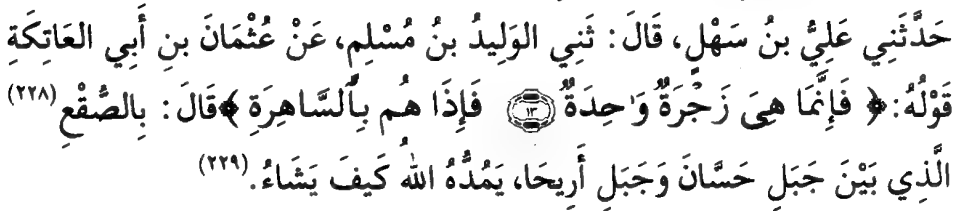 حَدَّثَنِي عَلِيُّ بنُ سَهْلٍ، قَالَ: ثَنِي الوَلِيدُ بنُ مُسْلِمٍ، عَنْ عُثْمَانَ بنِ أَبِي العَاتِكَةِ
قَوْلُهُ: ﴿ فَإِنَّمَا هِىَ زَجْرَةٌ وَٰحِدَةٌ ۝١٣ فَإِذَا هُم بِٱلسَّاهِرَةِ ﴾ قَالَ: بِالصُّقْعِ (٢٢٨)
الَّذِي بَيْنَ جَبَلِ حَسَّانَ وَجَبَلِ أَرِيحَا، يَمُدُّهُ اللهُ كَيفَ يَشَاءُ. (٢٢٩)